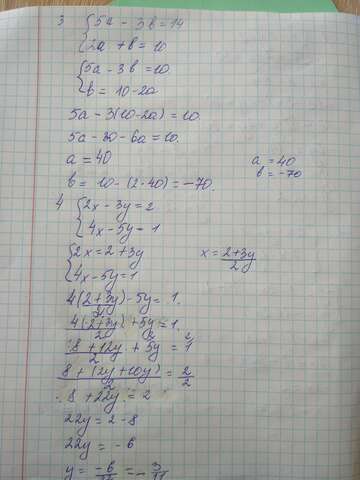 3 {5a - 3b = 14
2a + b = 10
{5a - 3b = 10
b = 10 - 2a
5a - 3(10 - 2a) = 10
5a - 30 - 6a = 10.
a = 40
a = 40
b = 10 - (2 · 40) = -70.
b = -70
4 {2x - 3y = 2
4x - 5y = 1
{2x = 2 + 3y
x = \frac{2+3y}{2y}
4x - 5y = 1
\frac{4(2+3y)}{2} - 5y = 1.
\frac{4(2+3y)}{2} + 5y = 1.
\frac{8+12y}{2} + 5y = 1
\frac{8+12y+10y}{2} = \frac{2}{2}
8 + 22y = 2
22y = 2 - 8
22y = -6
y = \frac{-6}{22} = -\frac{3}{11}